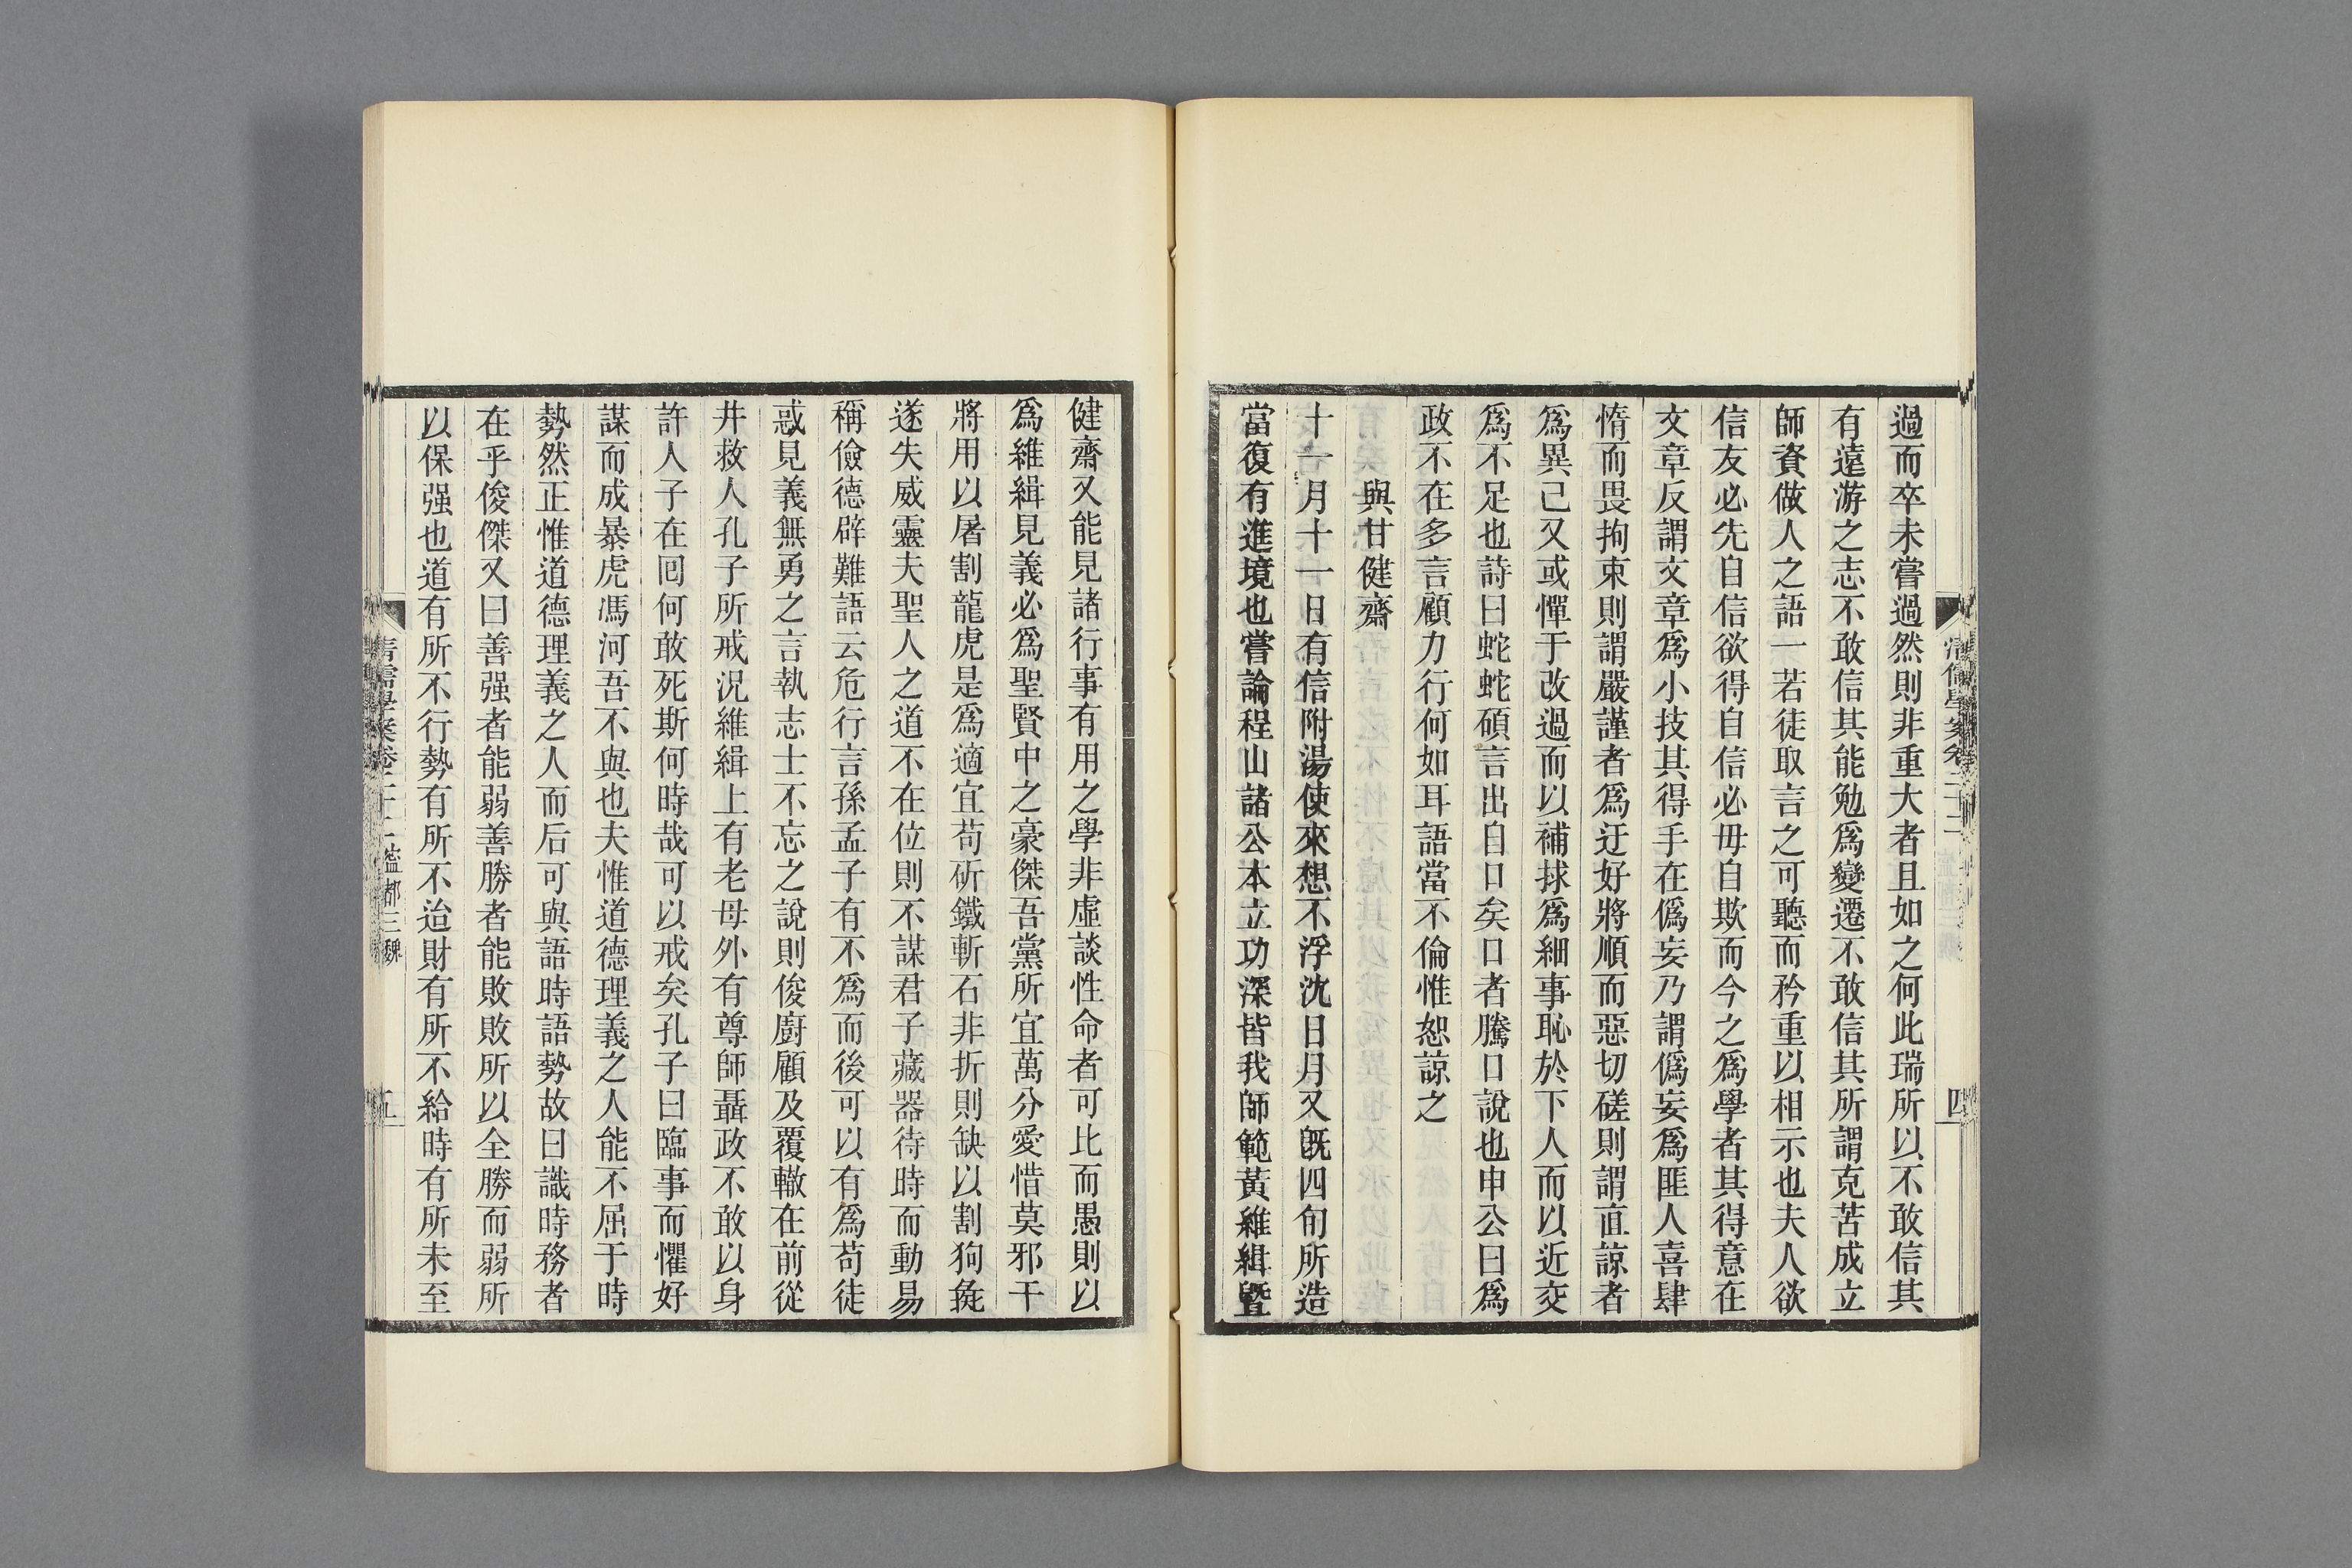 過而卒未嘗過然則非重大者且如之何此瑞所以不敢信其
有遠游之志不敢信其能勉爲變遷不敢信其所謂克苦成立
師資做人之語一若徒取言之可聽而矜重以相示也夫人欲
信友必先自信欲得自信必毋自欺而今之爲學者其得意在
文章反謂文章爲小技其得手在僞妄乃謂僞妄爲匪人喜肆
惰而畏拘束則謂嚴謹者爲迂好將順而惡切磋則謂直諒者
爲異己又或憚于改過而以補捄爲細事恥於下人而以近交
爲不足也詩曰蛇蛇碩言出自口矣口者騰口說也申公曰爲
政不在多言顧力行何如耳語當不倫惟恕諒之
與甘健齋
十一月十一日有信附湯使來想不浮沈日月又旣四旬所造
當復有進境也嘗論程山諸公本立功深皆我師範黃維緝曁
健齋又能見諸行事有用之學非虛談性命者可比而愚則以
爲維緝見義必爲聖賢中之豪傑吾黨所宜萬分愛惜莫邪干
將用以屠割龍虎是爲適宜苟斫鐵斬石非折則缺以割狗彘
遂失威靈夫聖人之道不在位則不謀君子藏器待時而動易
稱儉德辟難語云危行言孫孟子有不爲而後可以有爲苟徒
惑見義無勇之言執志士不忘之說則俊廚顧及覆轍在前從
井救人孔子所戒況維緝上有老母外有尊師聶政不敢以身
許人子在囘何敢死斯何時哉可以戒矣孔子曰臨事而懼好
謀而成暴虎馮河吾不與也夫惟道德理義之人能不屈于時
勢然正惟道德理義之人而后可與語時語勢故曰識時務者
在乎俊傑又曰善强者能弱善勝者能敗敗所以全勝而弱所
以保强也道有所不行勢有所不迨財有所不給時有所未至
清儒學案卷二十二 甯都三魏
五